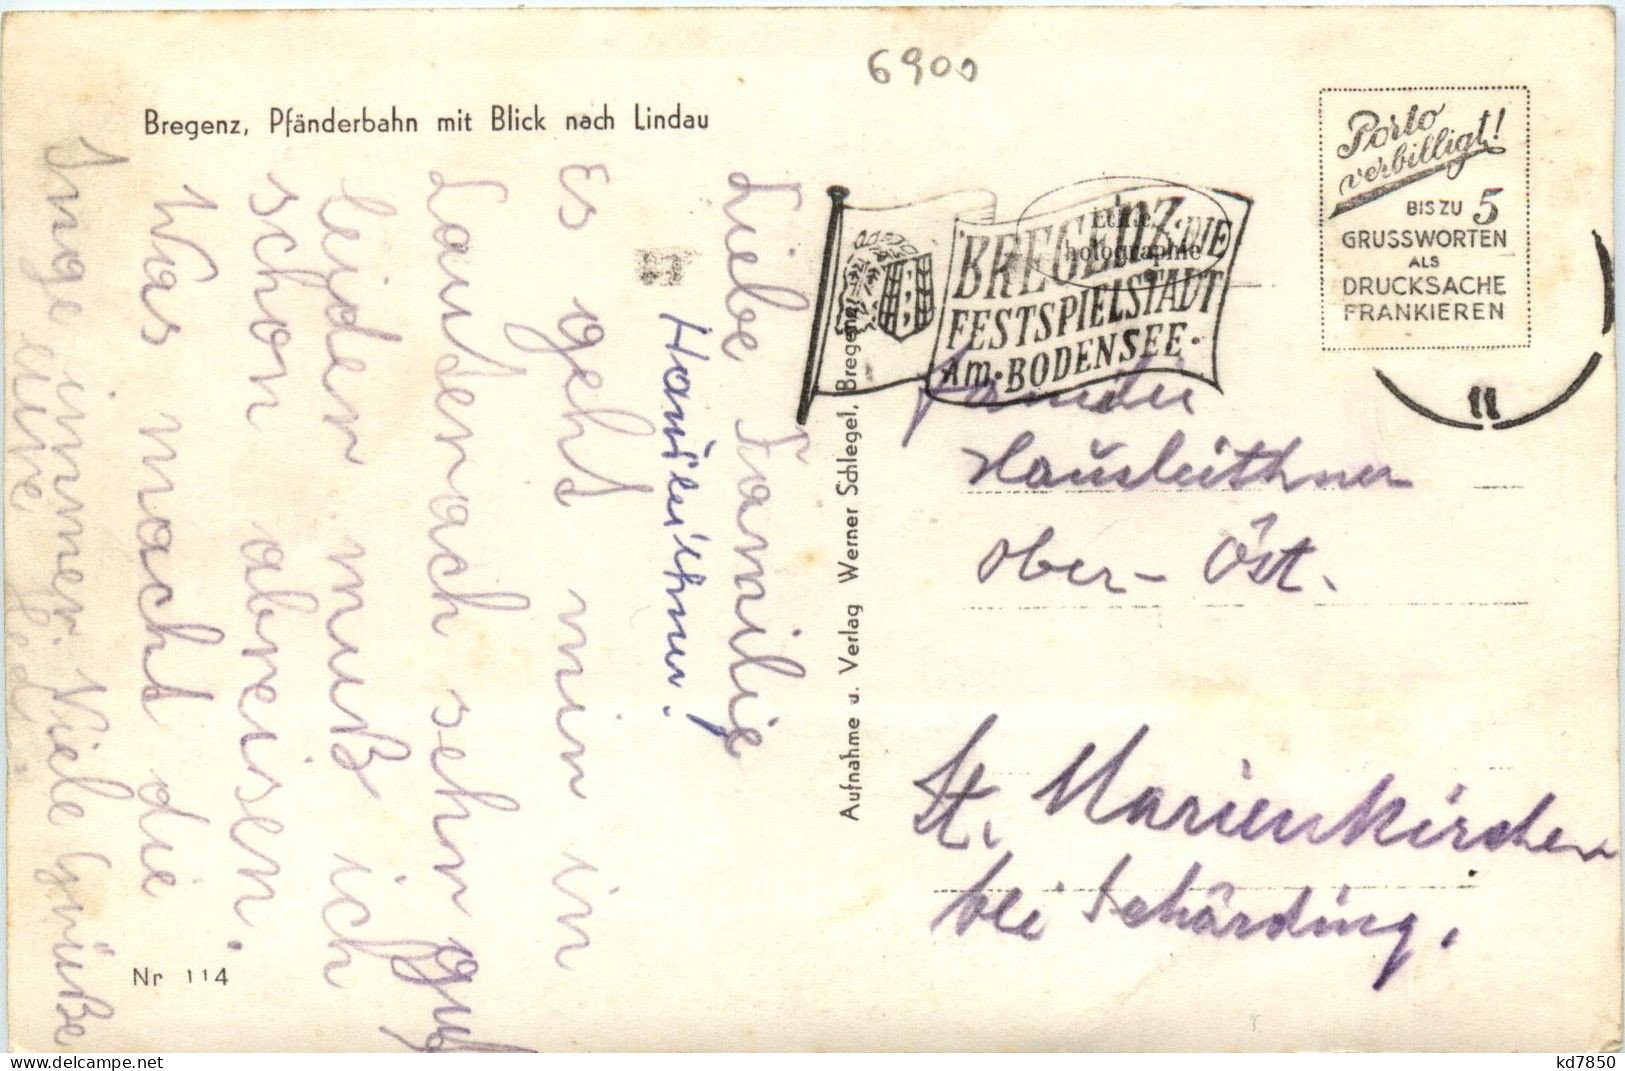 6900
Bregenz, Pfänderbahn mit Blick nach Lindau
Liebe Familie
Hausleithner.
Es geht mir in
Lauterach sehr gut
leider muß ich
schon abreisen.
Was macht die
Inge immer. Viele Grüße
eure
Nr 114
Aufnahme u. Verlag Werner Schlegel, Bregenz
Echte
Photographie
BREGENZ·DIE
FESTSPIELSTADT
Am·BODENSEE·
Porto
verbilligt!
BIS ZU 5
GRUSSWORTEN
ALS
DRUCKSACHE
FRANKIEREN
11
Familie
Hausleithner
Ober- Öst.
St. Marienkirchen
bei Schärding.
www.delcampe.net
kd7850